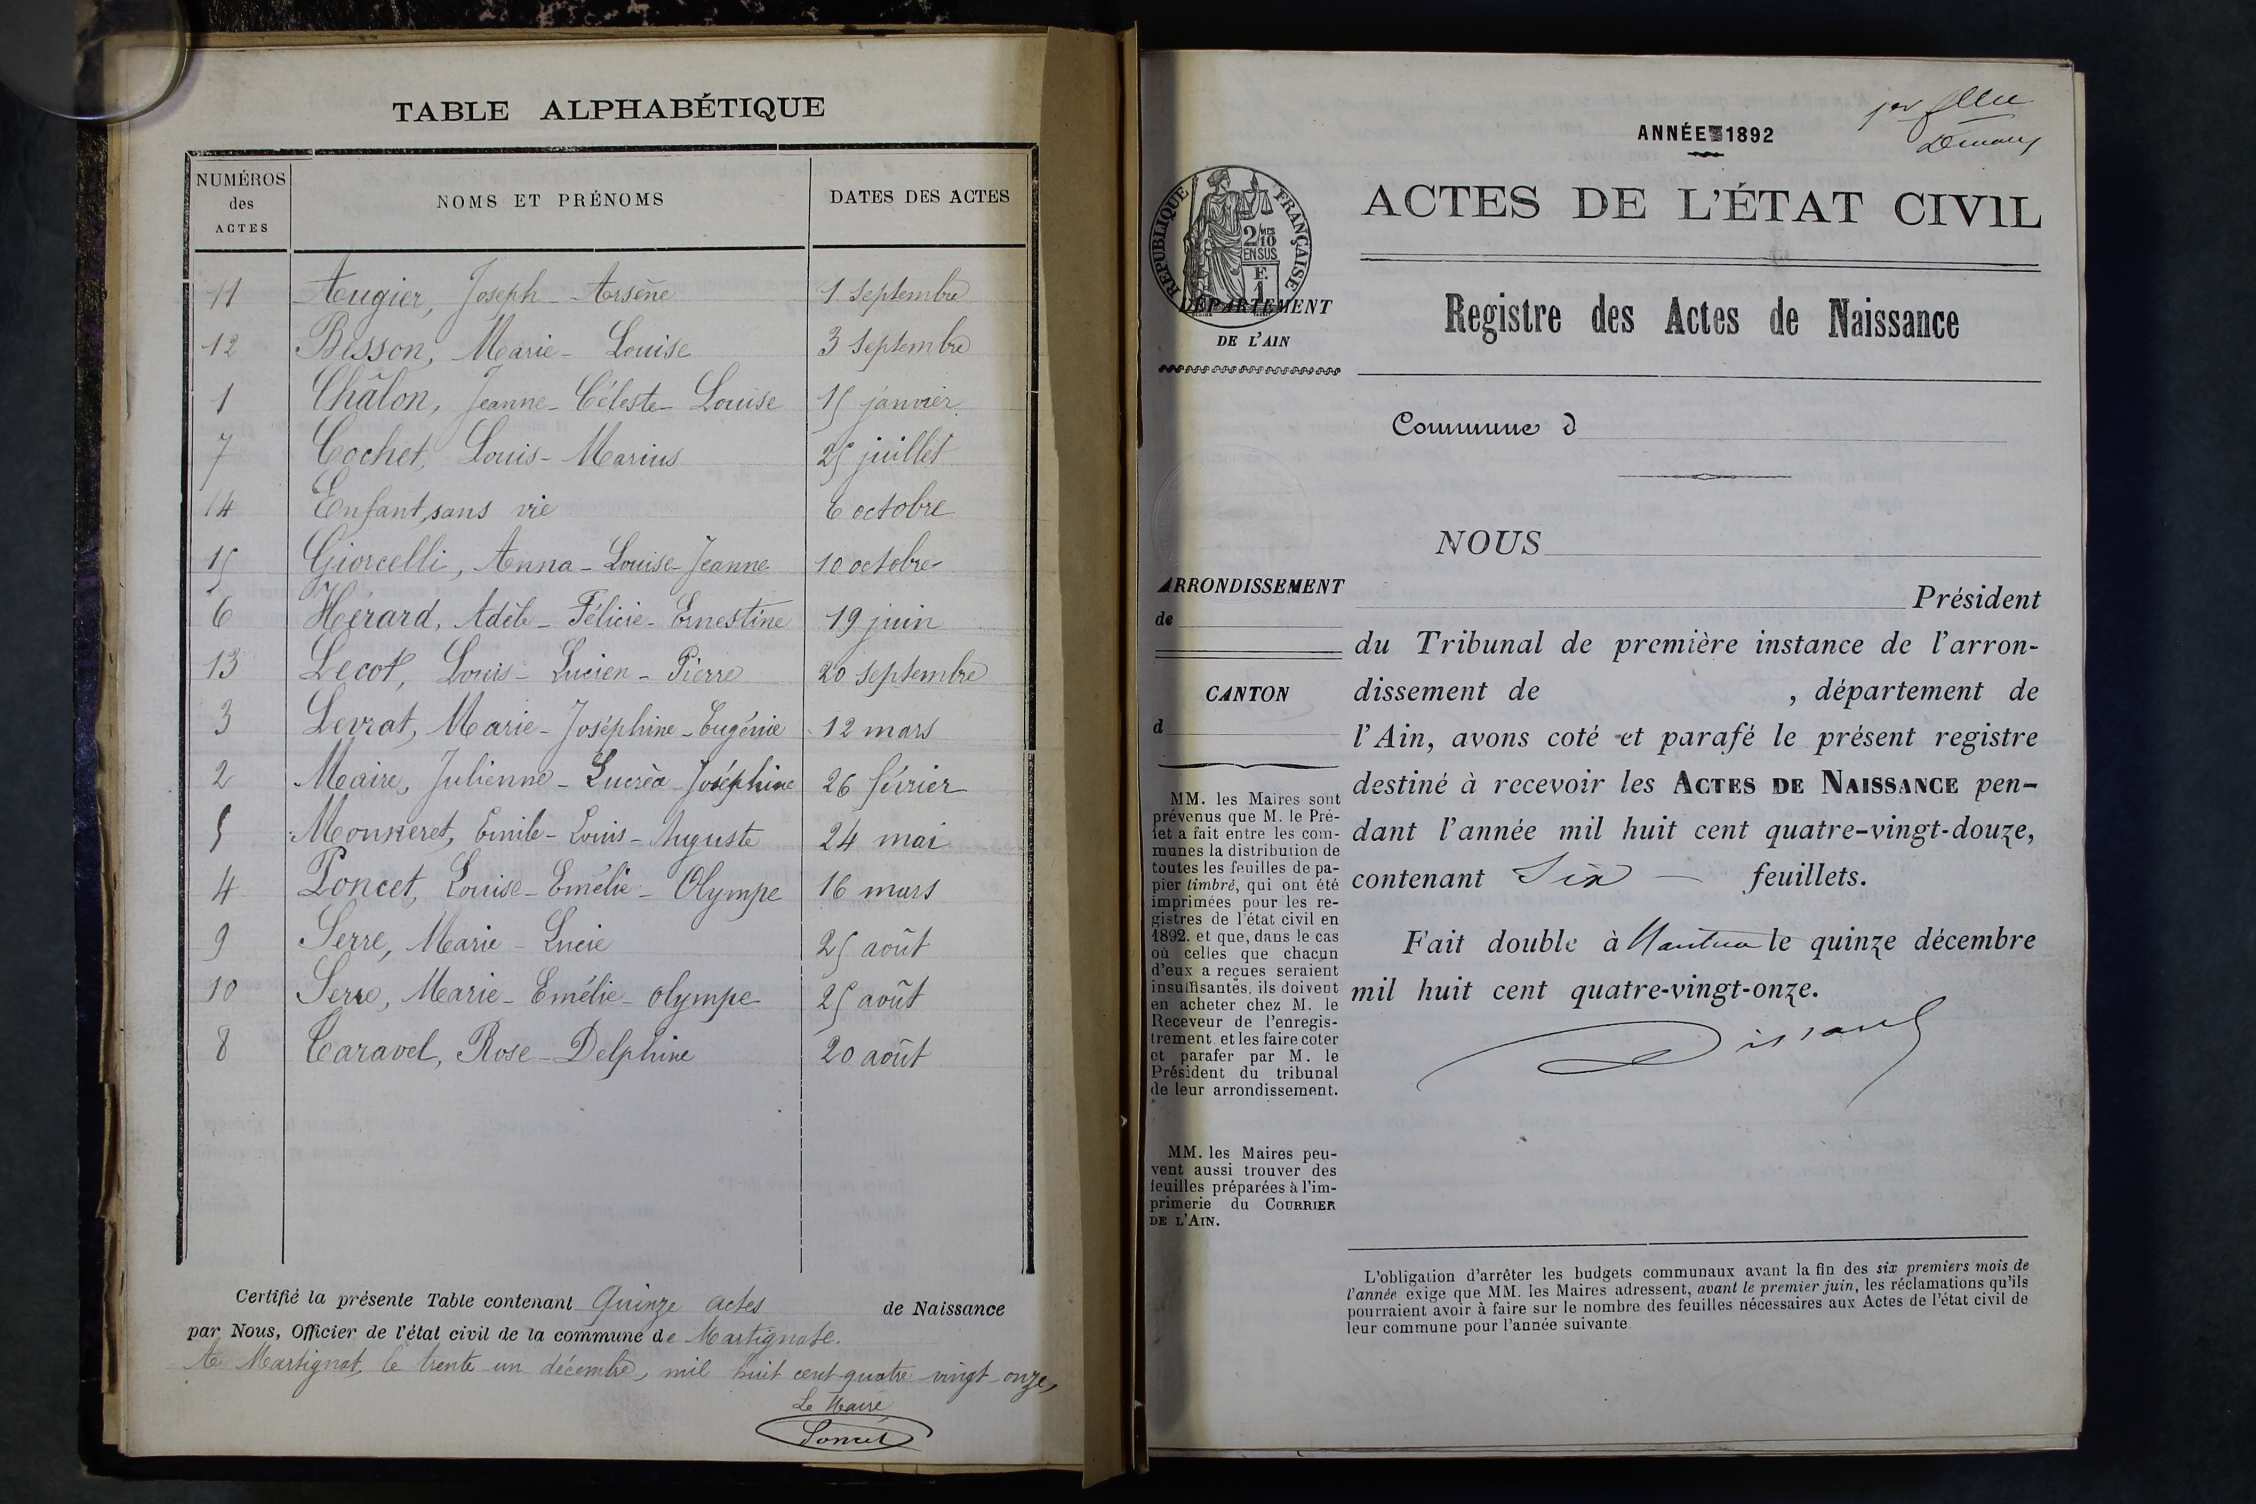 TABLE ALPHABÉTIQUE
NUMÉROS des ACTES NOMS ET PRÉNOMS DATES DES ACTES
11 Augier, Joseph-Arsène 1 septembre
12 Besson, Marie-Louise 3 septembre
1 Châlon, Jeanne-Céleste-Louise 15 janvier
7 Cochet, Louis-Marius 25 juillet
14 Enfant, sans vie 6 octobre
15 Giorcelli, Anna-Louise-Jeanne 10 octobre
6 Hérard, Adèle-Félicie-Ernestine 19 juin
13 Lecot, Louis-Lucien-Pierre 20 septembre
3 Levrat, Marie-Joséphine-Eugénie 12 mars
2 Maire, Julienne-Lucrèa-Joséphine 26 février
5 Monneret, Emile-Louis-Auguste 24 mai
4 Poncet, Louise-Emélie-Olympe 16 mars
9 Serre, Marie-Lucie 25 août
10 Serre, Marie-Emélie-Olympe 25 août
8 Caravel, Rose-Delphine 20 août
Certifié la présente Table contenant Quinze actes de Naissance
par Nous, Officier de l'état civil de la commune de Martignate.
A Martignat, le trente un décembre, mil huit cent quatre-vingt-onze,
Le Maire
Poncet
ANNÉE 1892
RÉPUBLIQUE FRANÇAISE
2/10
EN SUS
F.
1
ACTES DE L'ÉTAT CIVIL
Registre des Actes de Naissance
DÉPARTEMENT
DE L'AIN
Commune d
NOUS
ARRONDISSEMENT
de
CANTON
d
Président
du Tribunal de première instance de l'arron-
dissement de , département de
l'Ain, avons coté et parafé le présent registre
destiné à recevoir les ACTES DE NAISSANCE pen-
dant l'année mil huit cent quatre-vingt-douze,
contenant Six feuillets.
Fait double à Nantua le quinze décembre
mil huit cent quatre-vingt-onze.
MM. les Maires sont
prévenus que M. le Pré-
fet a fait entre les com-
munes la distribution de
toutes les feuilles de pa-
pier timbré, qui ont été
imprimées pour les re-
gistres de l'état civil en
1892. et que, dans le cas
où celles que chacun
d'eux a reçues seraient
insuffisantes, ils doivent
en acheter chez M. le
Receveur de l'enregis-
trement et les faire coter
et parafer par M. le
Président du tribunal
de leur arrondissement.
MM. les Maires peu-
vent aussi trouver des
feuilles préparées à l'im-
primerie du COURRIER
DE L'AIN.
L'obligation d'arrêter les budgets communaux avant la fin des six premiers mois de
l'année exige que MM. les Maires adressent, avant le premier juin, les réclamations qu'ils
pourraient avoir à faire sur le nombre des feuilles nécessaires aux Actes de l'état civil de
leur commune pour l'année suivante